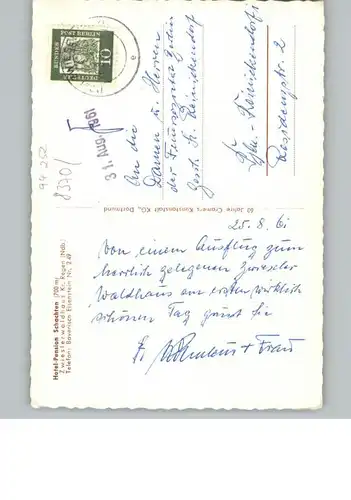 25.8.61
Von einem Ausflug zum
herrlich gelegenen Zwieseler
Waldhaus am ersten wirklich
schönen Tag grüßt Sie
+ Frau
An die
Damen u. Herren
der Feuersozietät Berlin
Gesch. St. Reinickendorf
Bln.-Reinickendorf
Residenzstr. 2
31. Aug. 1961
8370/
94 252
DEUTSCHE
BUNDESPOST
10
60 Jahre Cramers Kunstanstalt KG., Dortmund
Hotel-Pension Schachten (700 m)
Zwieslerwaldhaus Kr. Regen (Ndb.)
Telefon: Bayerisch Eisenstein Nr. 249